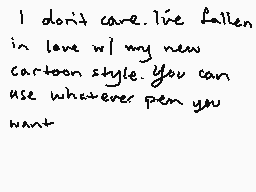 I don't care. I've fallen
in love w/ my new
cartoon style. You can
use whatever pen you
want